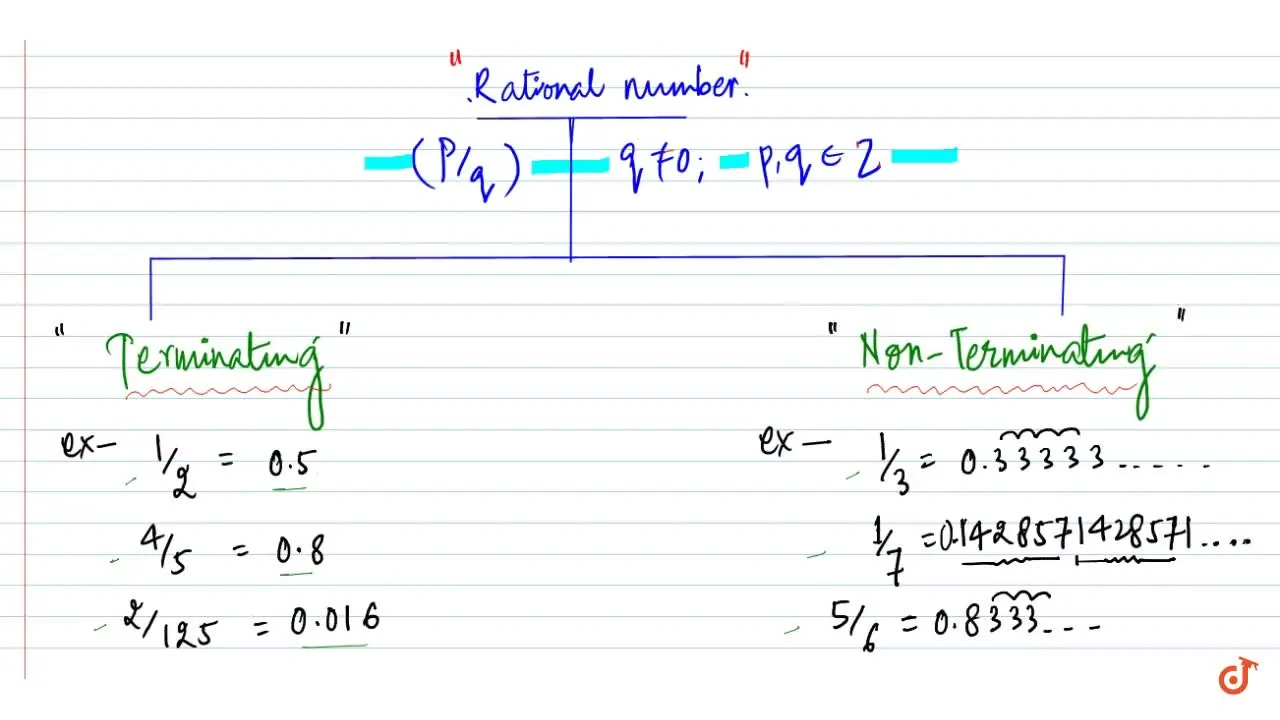 "Rational number"
(P/q) q≠0; p,q ∈ Z
"Terminating" "Non-Terminating"
ex- 1/2 = 0.5
4/5 = 0.8
2/125 = 0.016
ex- 1/3 = 0.33333.....
1/7 = 0.1428571428571....
5/6 = 0.8333...